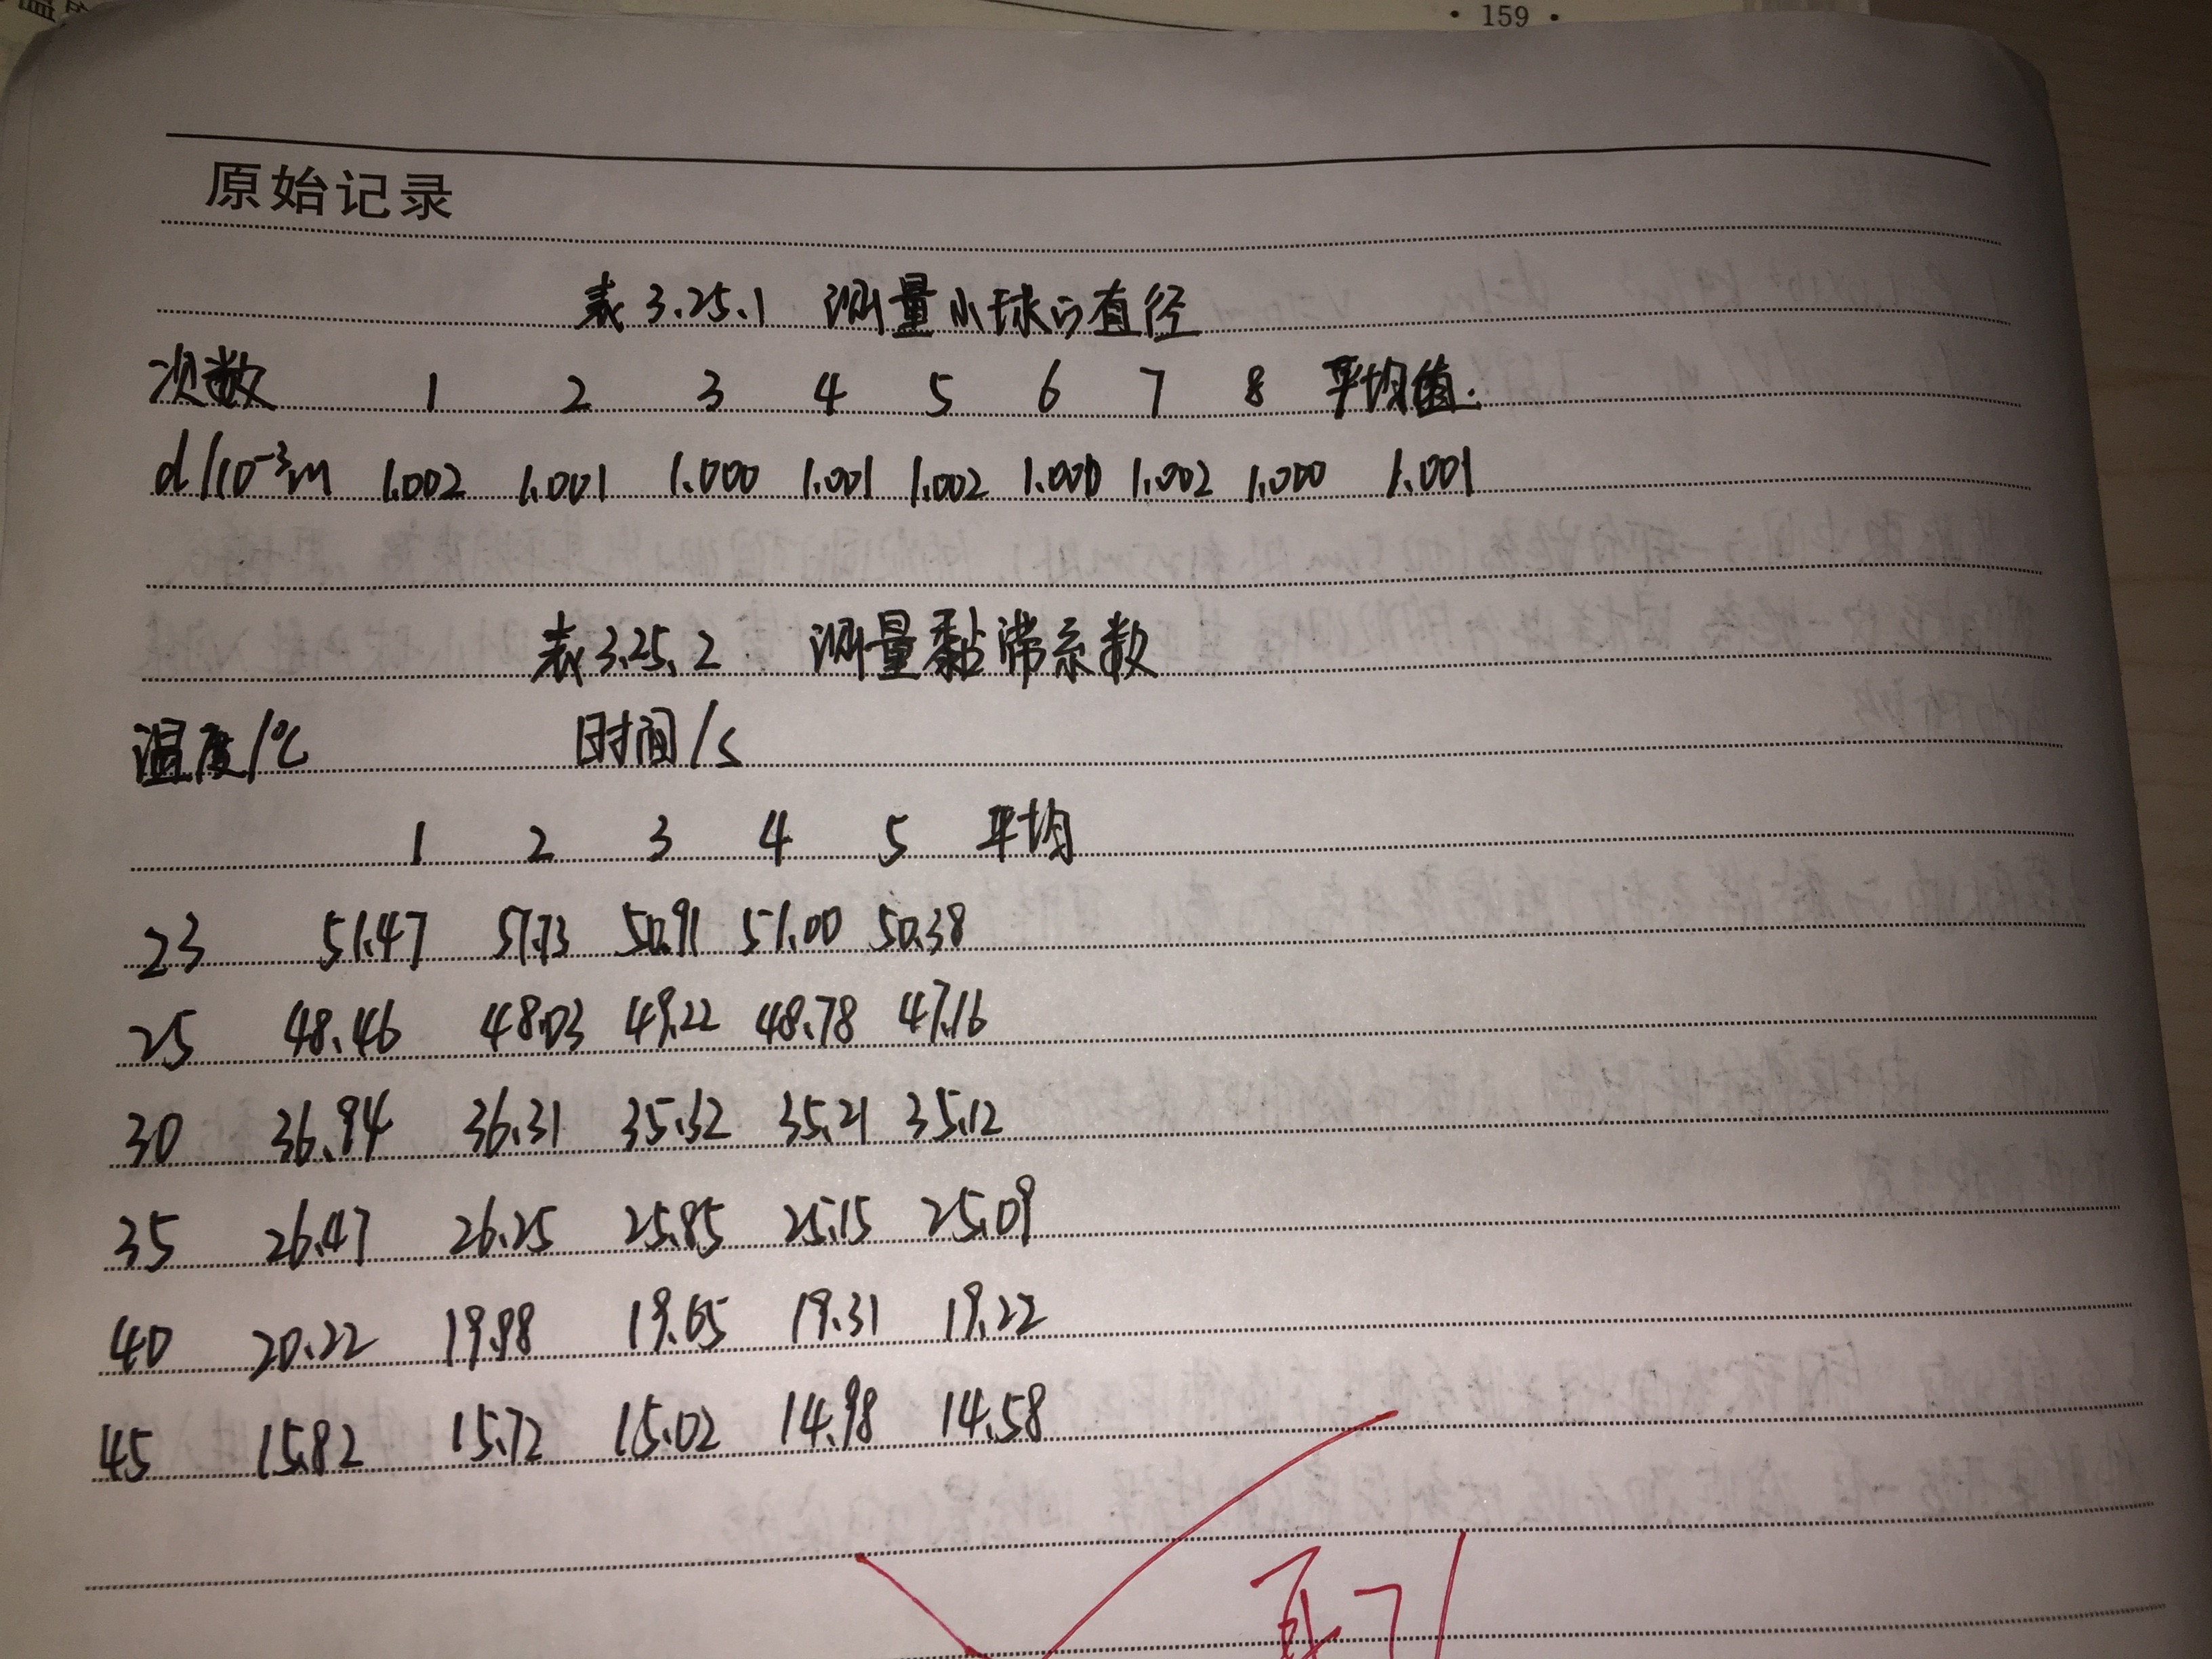 · 159 ·
原始记录
表3.25.1 测量小球的直径
次数 1 2 3 4 5 6 7 8 平均值.
d/10⁻³m 1.002 1.001 1.000 1.001 1.002 1.000 1.002 1.000 1.001
表3.25.2 测量黏滞系数
温度/℃ 时间/s
1 2 3 4 5 平均
23 51.47 51.73 50.91 51.00 50.38
25 48.46 48.03 49.22 48.78 47.16
30 36.94 36.31 35.32 35.21 35.12
35 26.47 26.25 25.85 25.15 25.09
40 20.22 19.98 19.65 19.31 19.22
45 15.82 15.72 15.02 14.98 14.58